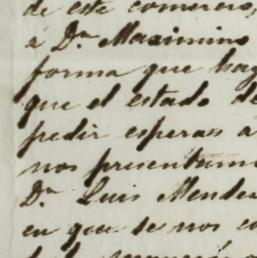 de este comercio,
á Dn Maximino
forma que hay
que el estado de
pedir esperas a
nos presentamo
Dn Luis Mende
en que se nos co